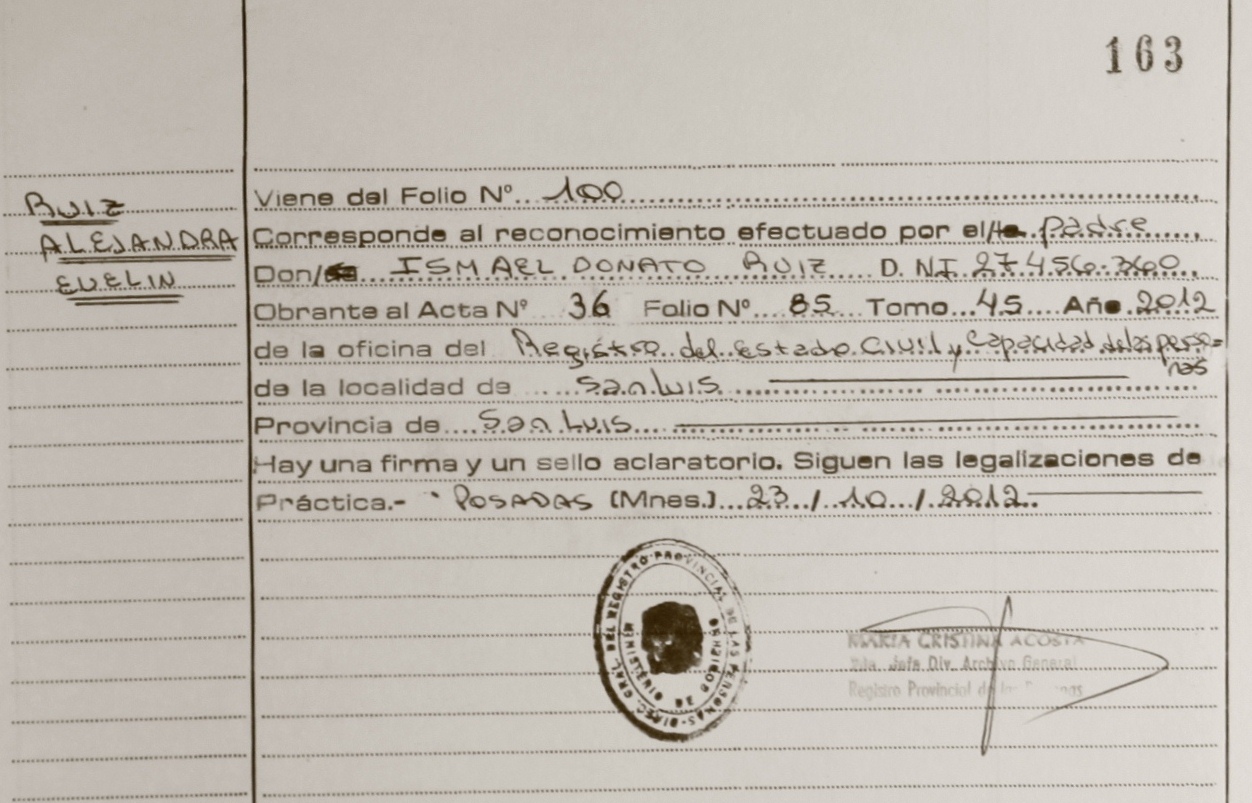 163
RUIZ
ALEJANDRA
EVELIN
Viene del Folio Nº 100
Corresponde al reconocimiento efectuado por el/la padre
Don/ña ISMAEL DONATO RUIZ D.N.I 27.456.360
Obrante al Acta Nº 36 Folio Nº 85 Tomo 45 Año 2012
de la oficina del Registro del Estado Civil y Capacidad de las perso=
nas
de la localidad de San Luis
Provincia de San Luis
Hay una firma y un sello aclaratorio. Siguen las legalizaciones de
Práctica.- POSADAS (Mnes.) 23/10/2012.
DIREC. GRAL. DEL REGISTRO PROVINCIAL DE LAS PERSONAS
MINISTERIO DE GOBIERNO
MARIA CRISTINA ACOSTA
2da. Jefa Div. Archivo General
Registro Provincial de las Personas